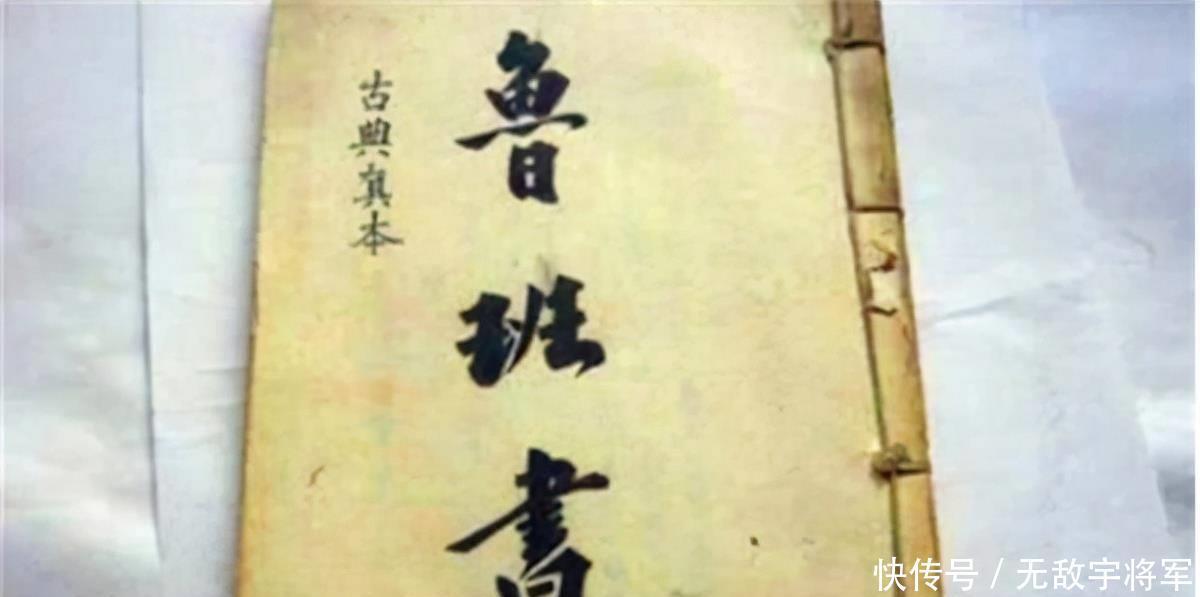 魯班書
古典真本
快传号 / 无敌宇将军